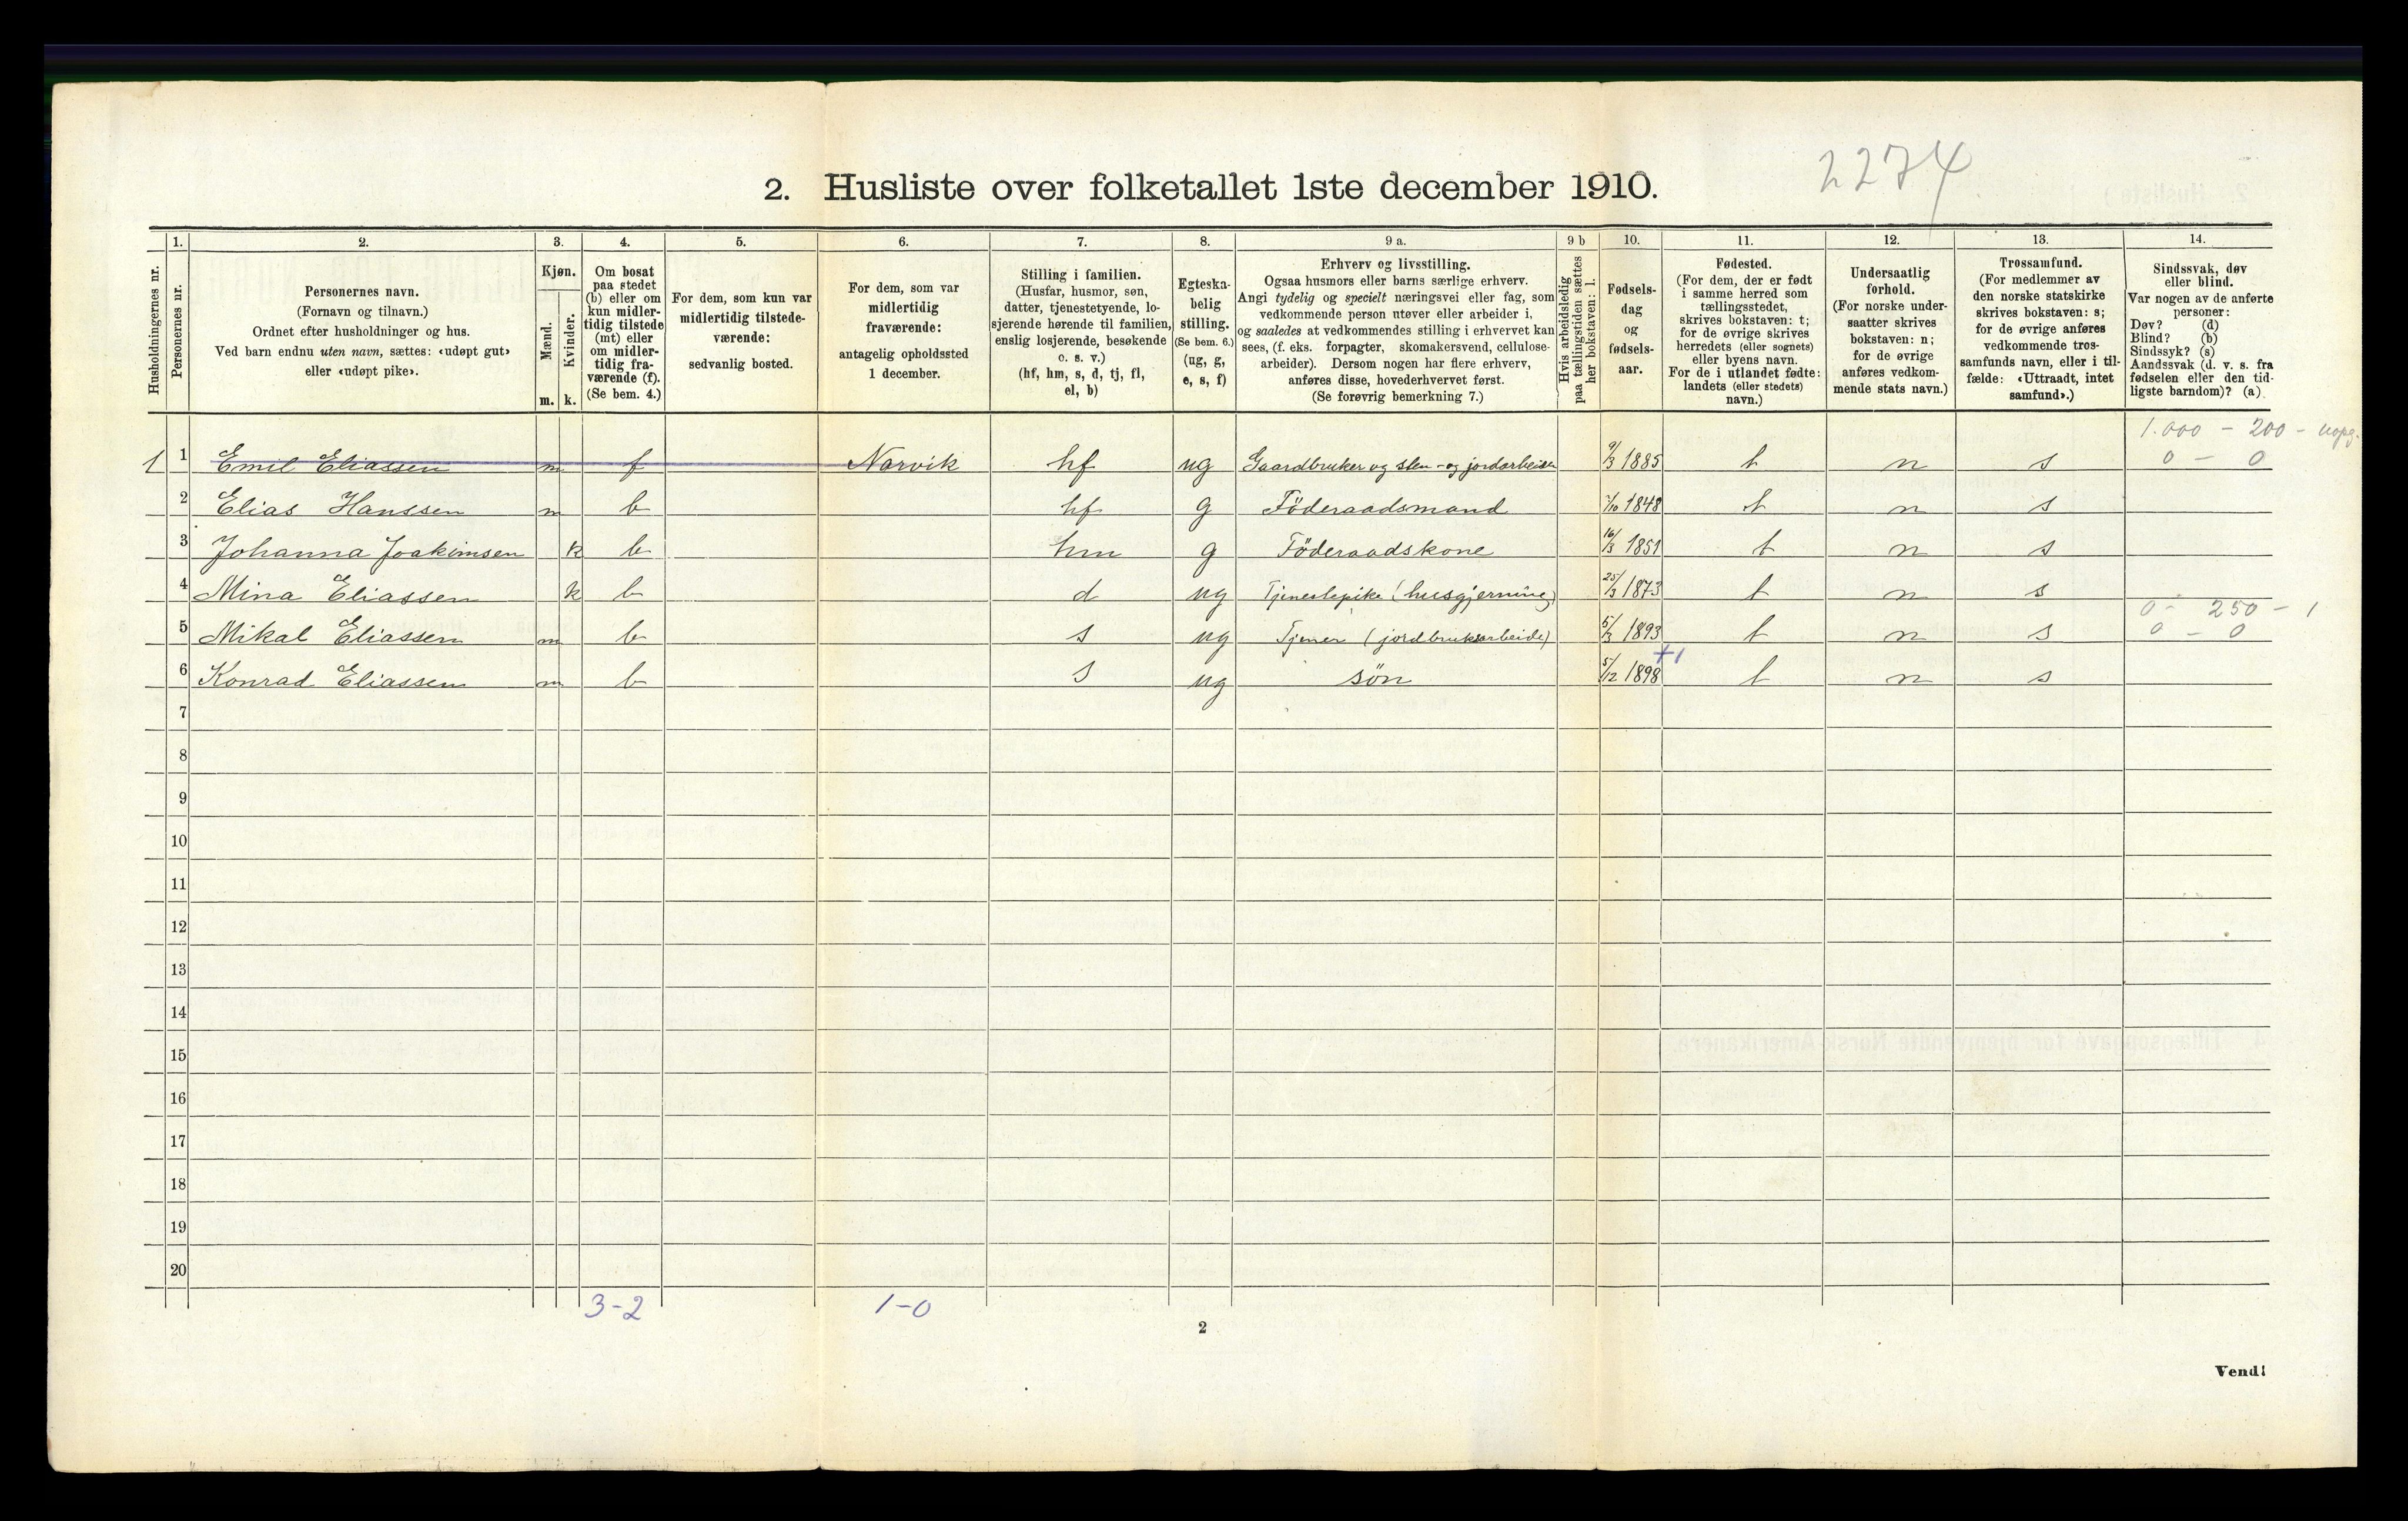 2274
2. Husliste over folketallet 1ste december 1910.
1. 2. 3. 4. 5. 6. 7. 8. 9 a. 9 b 10. 11. 12. 13. 14.
Husholdningernes nr.
Personernes nr.
Personernes navn.
(Fornavn og tilnavn.)
Ordnet efter husholdninger og hus.
Ved barn endnu uten navn, sættes: «udøpt gut»
eller «udøpt pike».
Kjøn.
Mænd.
Kvinder.
m. k.
Om bosat
paa stedet
(b) eller om
kun midler-
tidig tilstede
(mt) eller
om midler-
tidig fra-
værende (f).
(Se bem. 4.)
For dem, som kun var
midlertidig tilstede-
værende:
sedvanlig bosted.
For dem, som var
midlertidig
fraværende:
antagelig opholdssted
1 december.
Stilling i familien.
(Husfar, husmor, søn,
datter, tjenestetyende, lo-
sjerende hørende til familien,
enslig losjerende, besøkende
o. s. v.)
(hf, hm, s, d, tj, fl,
el, b)
Egteska-
belig
stilling.
(Se bem. 6.)
(ug, g,
e, s, f)
Erhverv og livsstilling.
Ogsaa husmors eller barns særlige erhverv.
Angi tydelig og specielt næringsvei eller fag, som
vedkommende person utøver eller arbeider i,
og saaledes at vedkommendes stilling i erhvervet kan
sees, (f. eks. forpagter, skomakersvend, cellulose-
arbeider). Dersom nogen har flere erhverv,
anføres disse, hovederhvervet først.
(Se forøvrig bemerkning 7.)
Hvis arbeidsledig
paa tællingstiden sættes
her bokstaven: l.
Fødsels-
dag
og
fødsels-
aar.
Fødested.
(For dem, der er født
i samme herred som
tællingsstedet,
skrives bokstaven: t;
for de øvrige skrives
herredets (eller sognets)
eller byens navn.
For de i utlandet fødte:
landets (eller stedets)
navn.)
Undersaatlig
forhold.
(For norske under-
saatter skrives
bokstaven: n;
for de øvrige
anføres vedkom-
mende stats navn.)
Trossamfund.
(For medlemmer av
den norske statskirke
skrives bokstaven: s;
for de øvrige anføres
vedkommende tros-
samfunds navn, eller i til-
fælde: «Uttraadt, intet
samfund».)
Sindssvak, døv
eller blind.
Var nogen av de anførte
personer:
Døv? (d)
Blind? (b)
Sindssyk? (s)
Aandssvak (d. v. s. fra
fødselen eller den tid-
ligste barndom)? (a)
1.000 - 200 - uopg.
1 1 Emil Eliassen m f Narvik hf ug Gaardbruker og sten- og jordarbeider 9/3 1885 t n s 0 - 0
2 Elias Hanssen m b hf g Föderaadsmand 7/10 1848 t n s
3 Johanna Joakimsen k b hm g Föderaadskone 16/3 1851 t n s
4 Mina Eliassen k b d ug Tjenestepike (husgjerning) 25/3 1873 t n s
0 - 250 - 1
5 Mikal Eliassen m b s ug Tjener (jordbruksarbeide) 5/3 1893 t n s 0 - 0
+1
6 Konrad Eliassen m b s ug søn 5/12 1898 t n s
7
8
9
10
11
12
13
14
15
16
17
18
19
20
3-2 1-0
2
Vend!